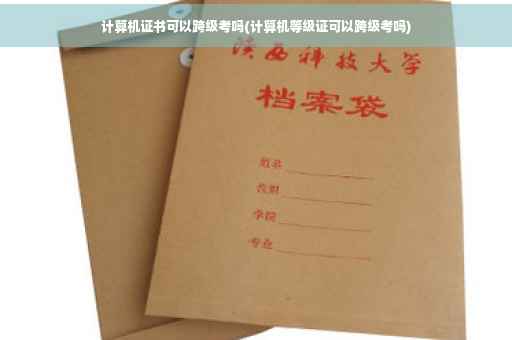 计算机证书可以跨级考吗(计算机等级证可以跨级考吗)
陕西科技大学
档案袋
姓名
学院
专业